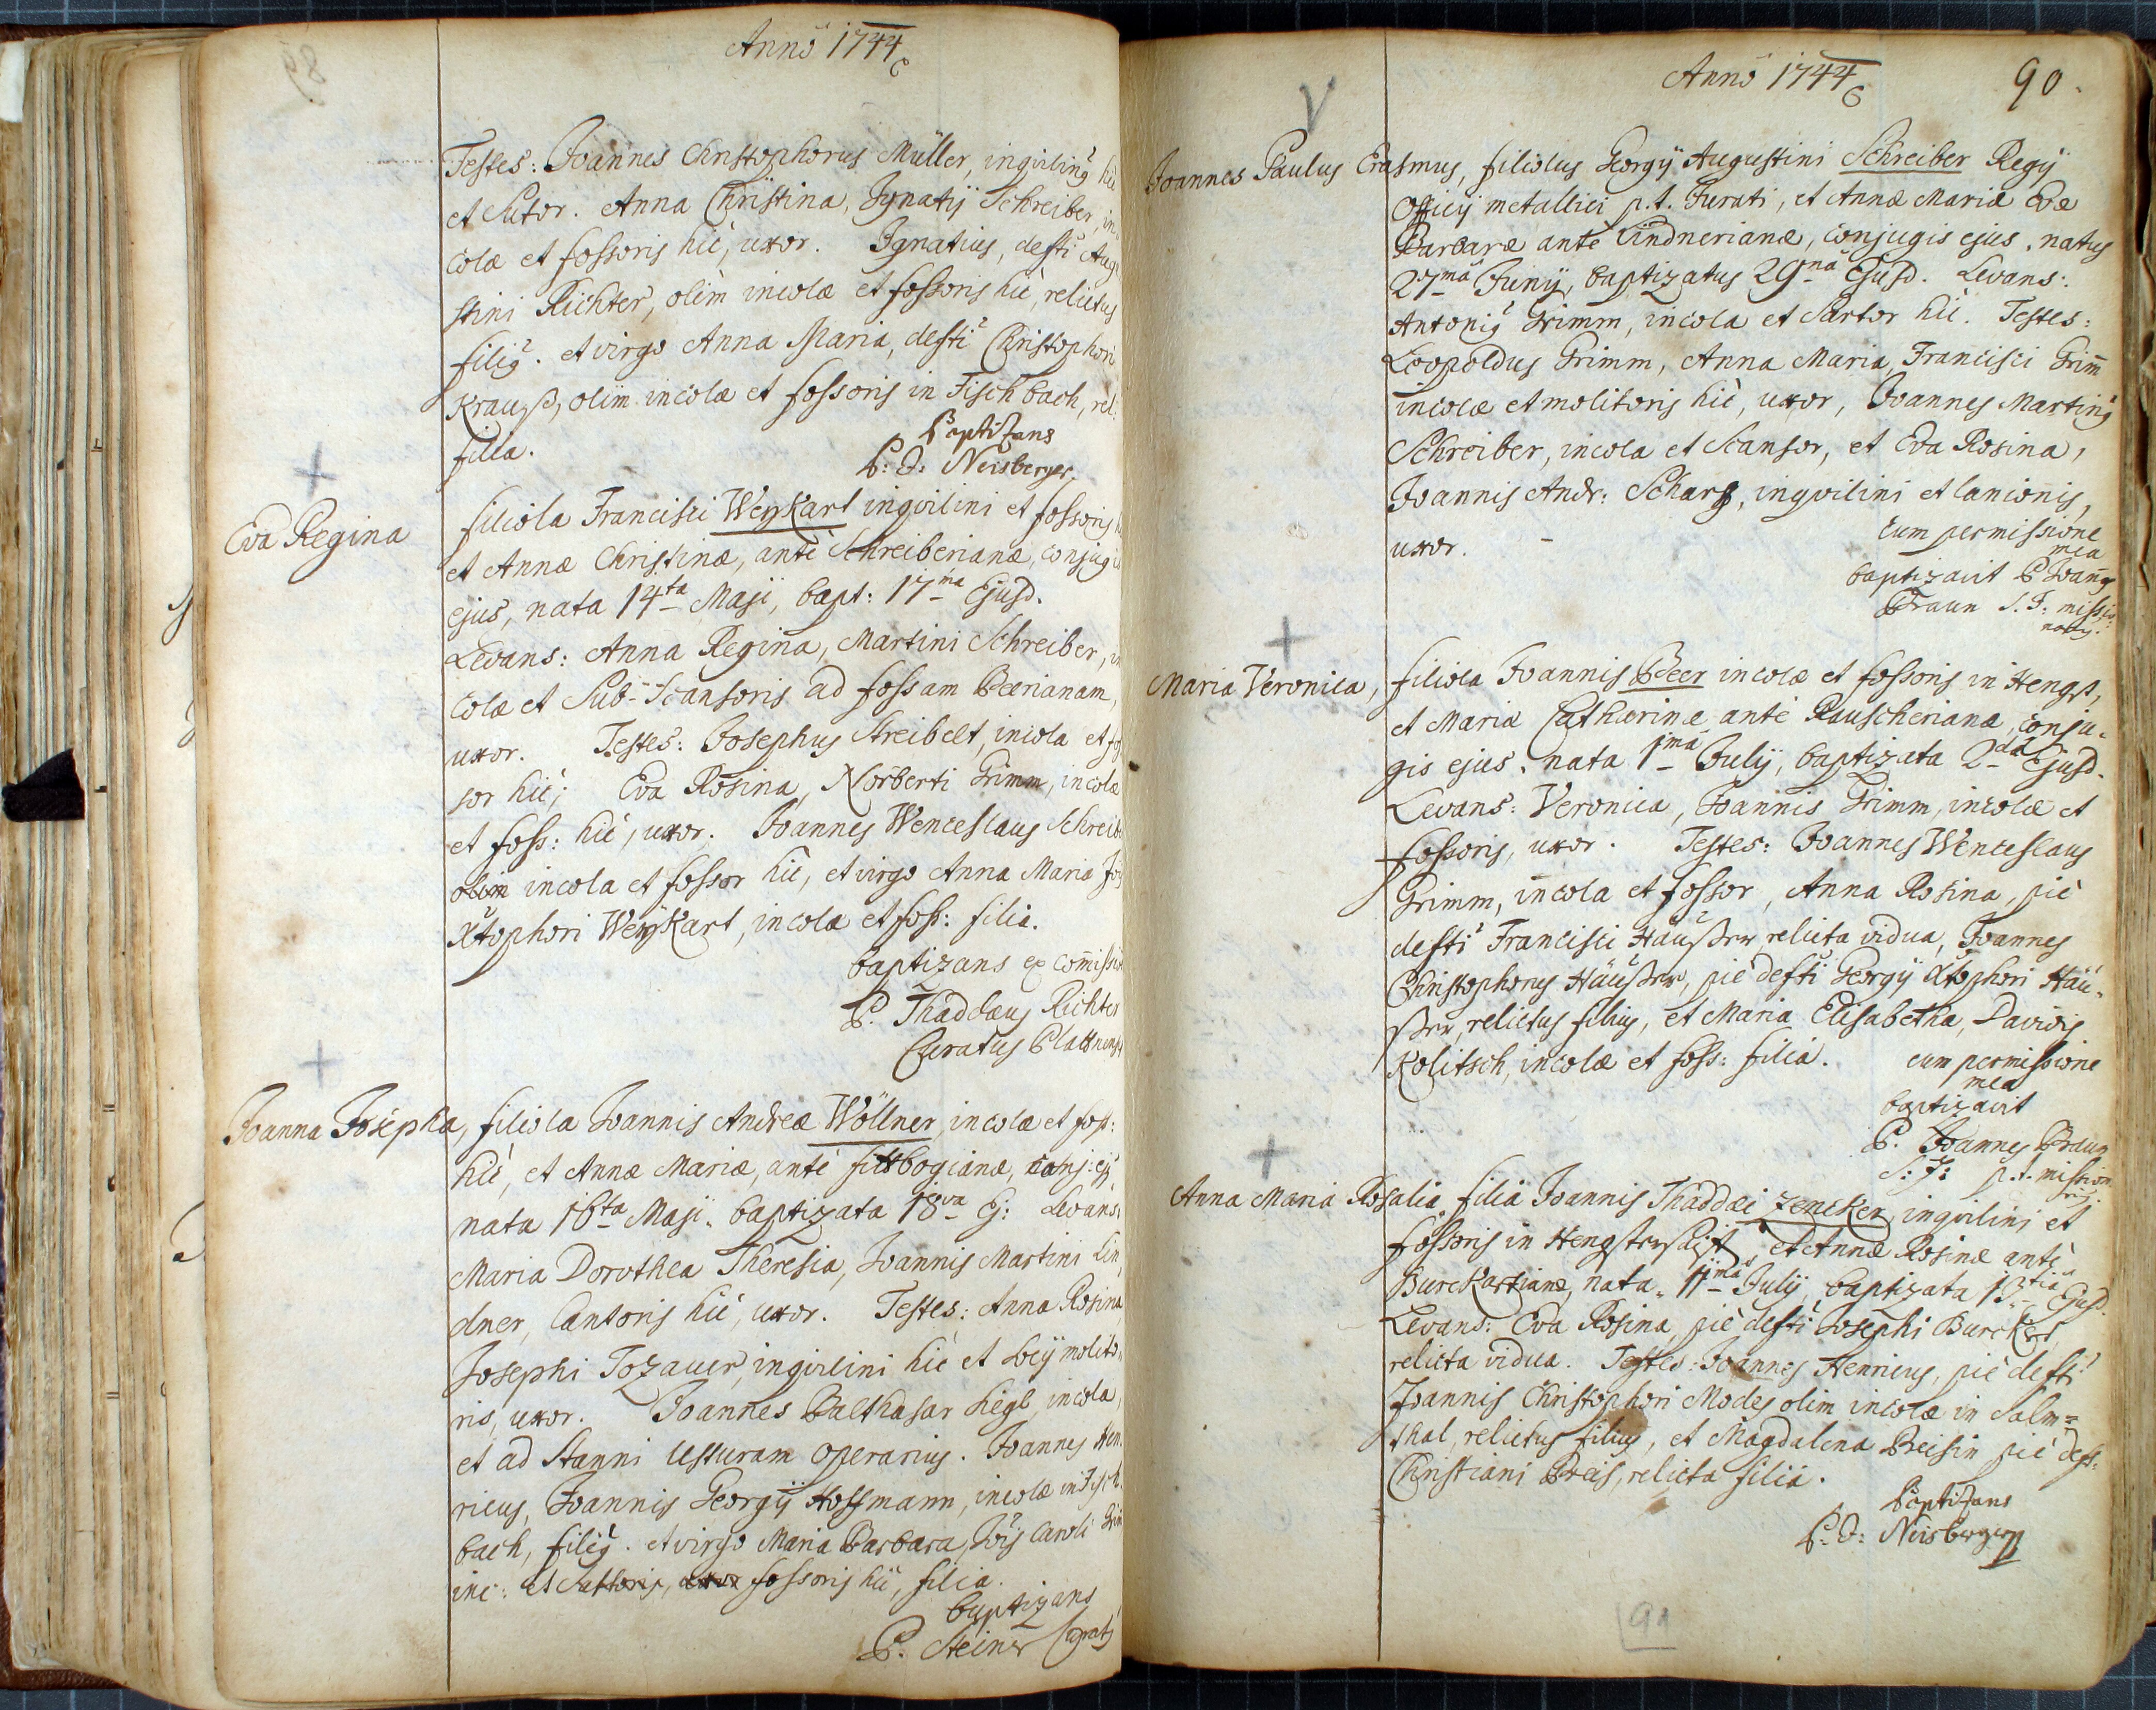 89
Anno 1744
Testes: Joannes Christophorus Müller, inquilin9 hic
et Sutor. Anna Christina, Ignatij Schreiber, in
colæ et fossoris hic, uxor. Ignatius, defti Augu
stini Richter, olim incolæ et fossoris hic, relictus
fili9. et virgo Anna Maria, defti Christophori
Krauß, olim incolæ et fossoris in Fischbach, rel:
filia.
Baptizans
P: J: Neisberger
Eva Regina
filiola Francisci Weykart inquilini et fossoris
et Annæ Christinæ, ante Schreiberianæ, conjugis
ejus, nata 14ta Maji, bapt: 17ma Ejusd.
Levans: Anna Regina, Martini Schreiber, in
colæ et Sub-Scansoris ad fossam Beerianam,
uxor. Testes: Josephus Streibelt, incola et fos
sor hic; Eva Rosina, Norberti Grimm, incolæ
et foss: hic, uxor. Joannes Wenceslaus Schreib
olim incola et fossor hic, et virgo Anna Maria Jois
Xtophori Weykart, incolæ et foss: filia.
baptizans ex com̄issione
P. Thaddæus Richter
Curatus Plattnensis
Joanna Josepha, filiola Joannis Andreæ Wöllner, incolæ et foss:
hic, et Annæ Mariæ, ante fittbogianæ, conj: ej9
nata 16ta Maji. baptizata 18va Ej: Levans:
Maria Dorothea Theresia, Joannis Martini Lin
dner, Cantoris hic, uxor. Testes: Anna Rosina
Josephi Tozauer, inquilini hic et Loeymolito
ris, uxor. Joannes Balthasar Liegl, incola,
et ad Stanni Usturam Operarius. Joannes Hen
ricus, Joannis Georgij Hoffmann, incolæ in Fisch
bach, fili9. et virgo Maria Barbara, Jois Caroli Grim
inc: et Sartoris, uxor fossoris hic, filia.
baptizans
P. Steiner
Anno 1744
90.
Joannes Paulus Erasmus, filiolus Georgij Augustini Schreiber Regij
Officij metallici p.t. Jurati, et Annæ Mariæ Evæ
Barbaræ ante Lindnerianæ, conjugis ejus. natus
27ma Junij, baptizatus 29na Ejusd. Levans:
Antoni9 Grimm, incola et Sartor hic. Testes:
Leopoldus Grimm, Anna Maria, Francisci Grim̄
incolæ et molitoris hic, uxor, Joannes Martin9
Schreiber, incola et Scansor, et Eva Rosina,
Joannis Andr: Scharf, inquilini et lanionis,
uxor.
cum permissione
mea
baptizavit P Joannes
Braun S. J: missio
nariy.
Maria Veronica, filiola Joannis Beer incolæ et fossoris in Hengst,
et Mariæ Catharinæ ante Rauscherianæ, conju-
gis ejus. nata 1ma July, baptizata 2da Ejusd.
Levans: Veronica, Joannis Grimm, incolæ et
fossoris, uxor. Testes: Joannes Wenceslaus
Grimm, incola et fossor, Anna Rosina, pie
defti Francisci Häußer, relicta vidua, Joannes
Christophorus Häußer, pie defti Georgij Xtophori Häu-
ßer, relictus filius, et Maria Elisabetha, Davidis
Kolitsch, incolæ et foss: filia.
cum permissione
mea
baptizavit
P. Joannes Braun
S: J: p.t. mission
riy.
Anna Maria Rosalia, filia Joannis Thaddæi Zencker, inquilini et
fossoris in Hengst, et Annæ Rosinæ ante
Burckartianæ, nata 11ma July, baptizata 13tia Ejusd.
Levans: Eva Rosina, pie defti Josephi Burckert
relicta vidua. Testes: Joannes Henricus, pie defti
Joannis Christophori Modes olim incolæ in Salm=
thal, relictus filius, et Magdalena Preisin pie def:
Christiani Preis, relicta filia.
Baptizans
P: J: Neisberger
91